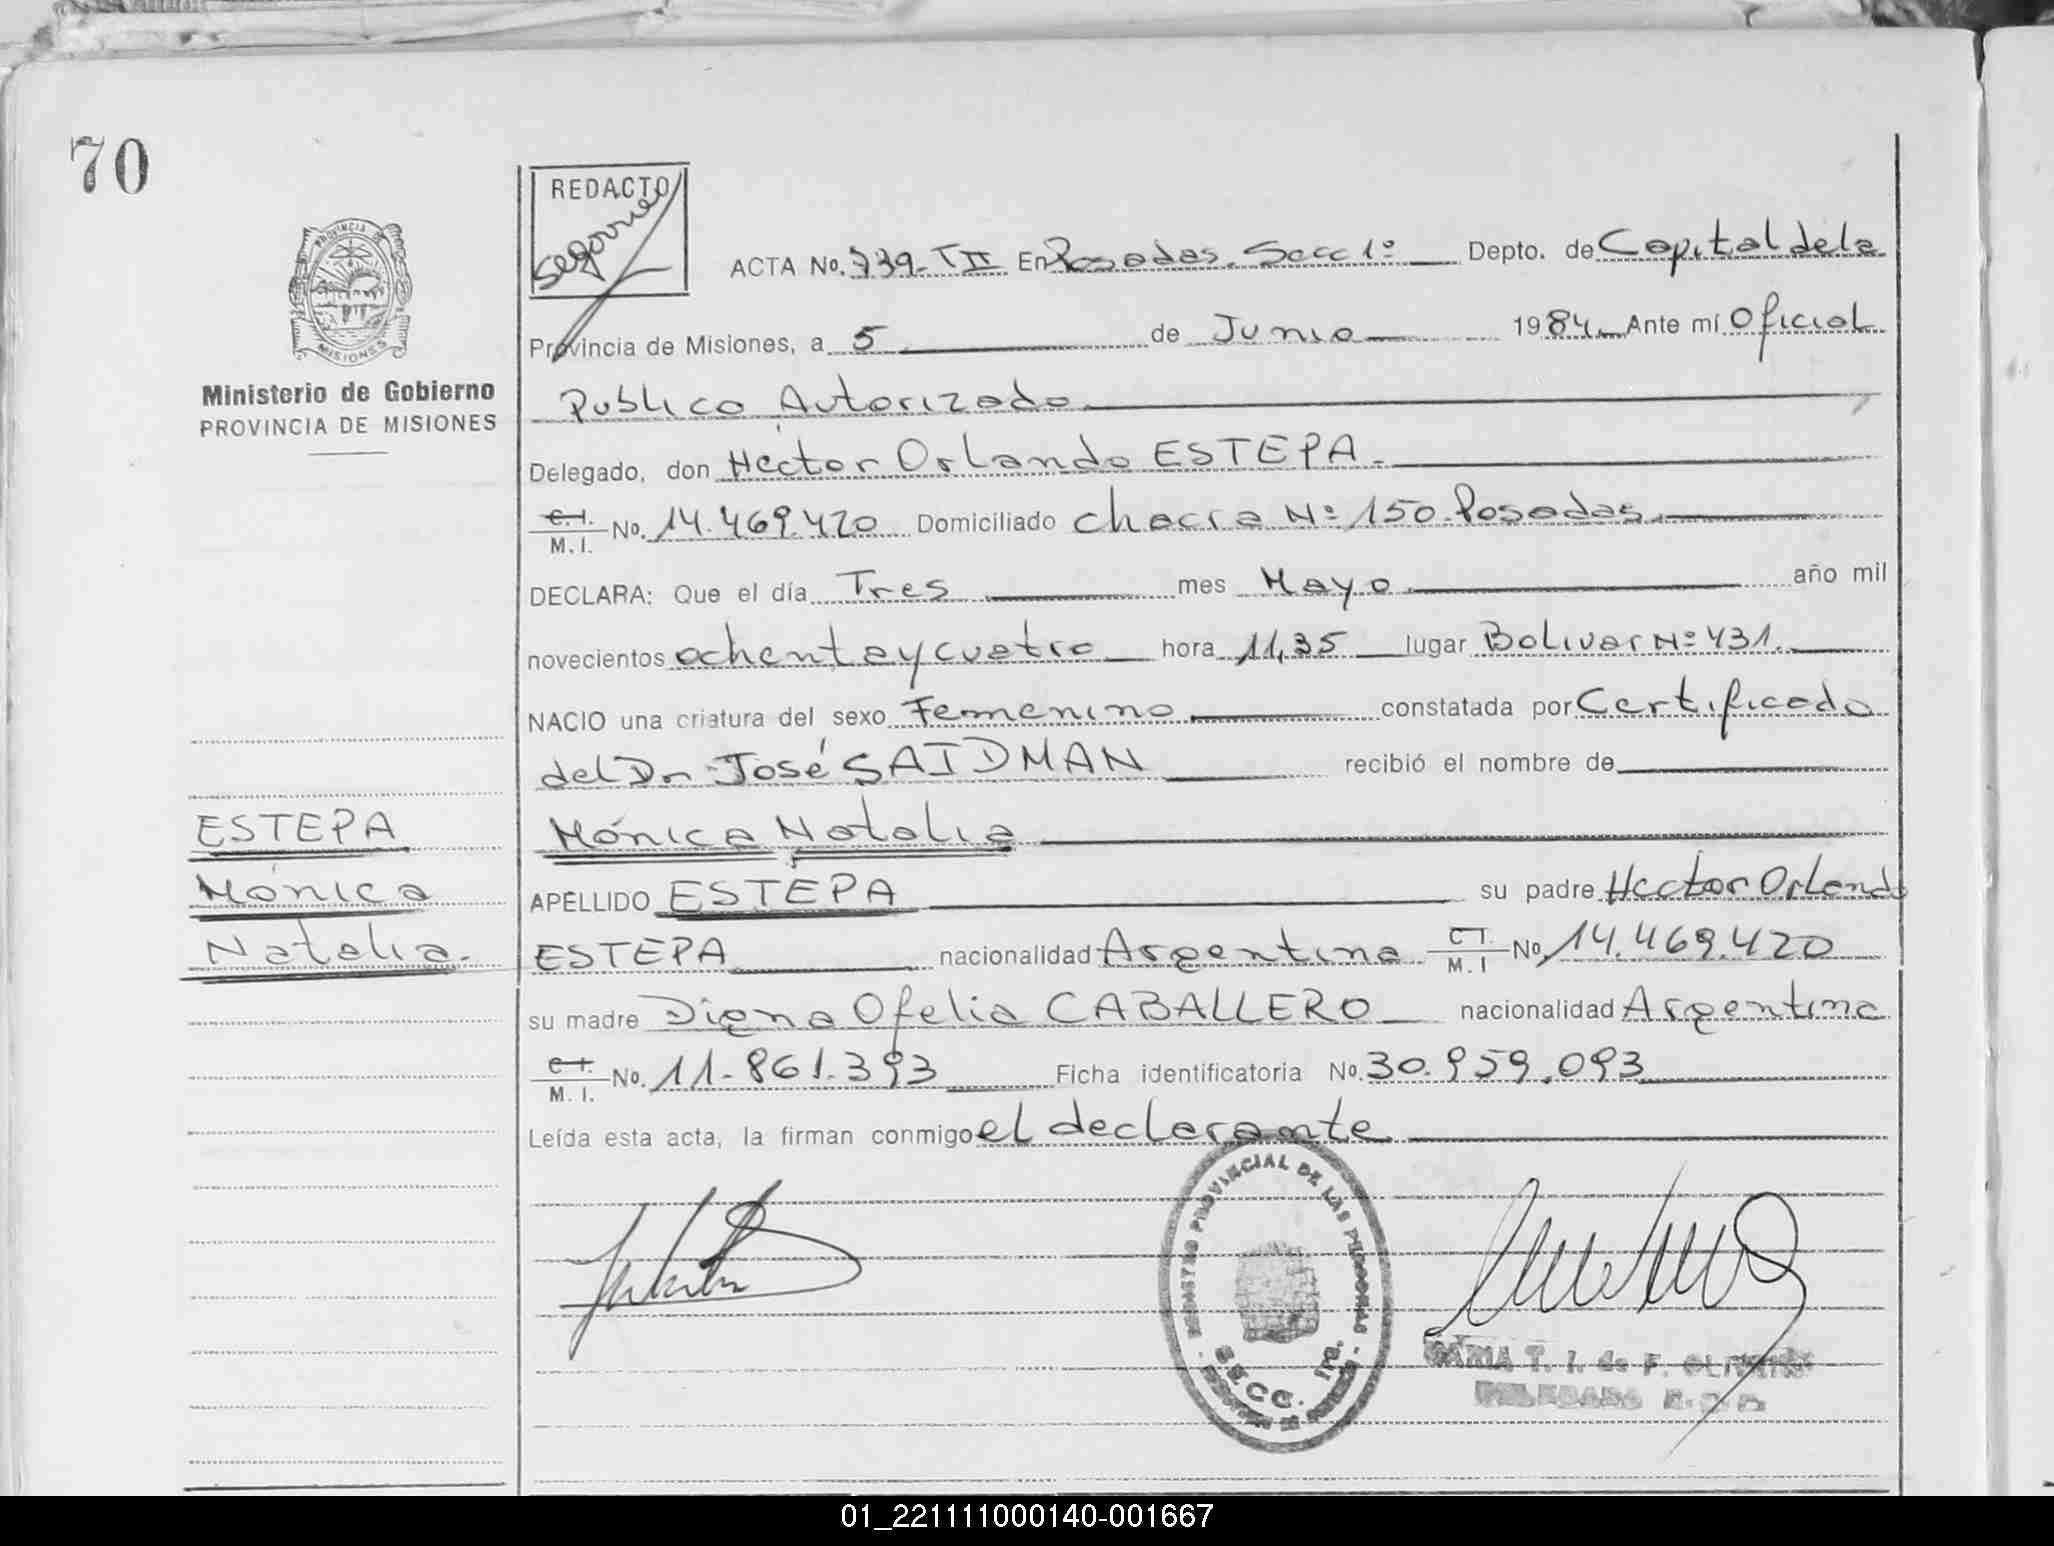 70
PROVINCIA DE
MISIONES
Ministerio de Gobierno
PROVINCIA DE MISIONES
REDACTO
ACTA No. 739-TII En Posadas. Secc 1º Depto. de Capital de la
Provincia de Misiones, a 5 de Junio 1984. Ante mí Oficial
Publico Autorizado
Delegado, don Héctor Orlando ESTEPA.
C.I. M.I. No. 14.469.420 Domiciliado chacra Nº 150. Posadas.
DECLARA: Que el día Tres mes Mayo año mil
novecientos ochenta y cuatro hora 11,35 lugar Bolivar Nº 431.
NACIO una criatura del sexo Femenino constatada por Certificado
del Dr. José SAIDMAN recibió el nombre de
Mónica Natalia
APELLIDO ESTEPA su padre Hector Orlando
ESTEPA nacionalidad Argentina C I. M. I No. 14.469.420
su madre Digna Ofelia CABALLERO nacionalidad Argentina
C.I. M. I. No. 11.861.393 Ficha identificatoria No. 30.959.093
Leída esta acta, la firman conmigo el declarante
ESTEPA
Mónica
Natalia.
REGISTRO PROVINCIAL DE LAS PERSONAS
SECC. 1ra.
T. I. de F.
DELEGADO
01_221111000140-001667